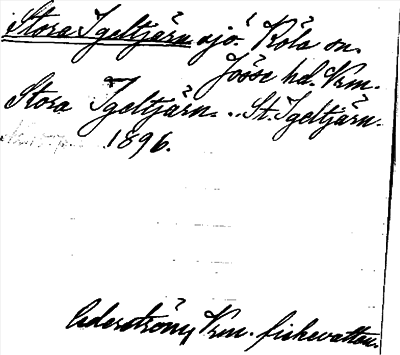 Stora Igeltjärn sjö. Köla sn.
Jösse hd. Vrm.
Stora Igeltjärn. .. St. Igeltjärn.
1896.
Cederström, Vrm. fiskevatten.